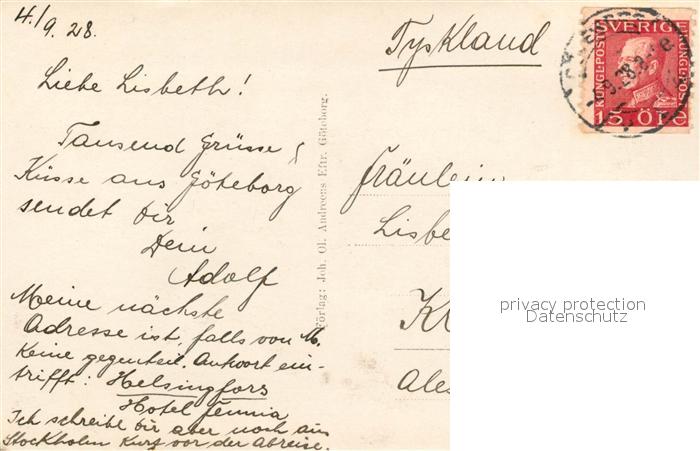 4./9.28.
Tyskland
SVERIGE
KUNGL. POST
KUNGL. POST
15 ÖRE
Liebe Lisbeth!
Tausend Grüsse &
Küsse aus Göteborg
sendet Dir
Dein
Adolf
Meine nächste
Adresse ist, falls von M.
keine gegenteil. Antwort ein-
trifft: Helsingfors
Hotel Fennia
Ich schreibe Dir aber noch aus
Stockholm kurz vor der Abreise.
Förlag: Joh. Ol. Andreens Eftr. Göteborg.
Fräulein
Lisbe
K
Ales
privacy protection
Datenschutz